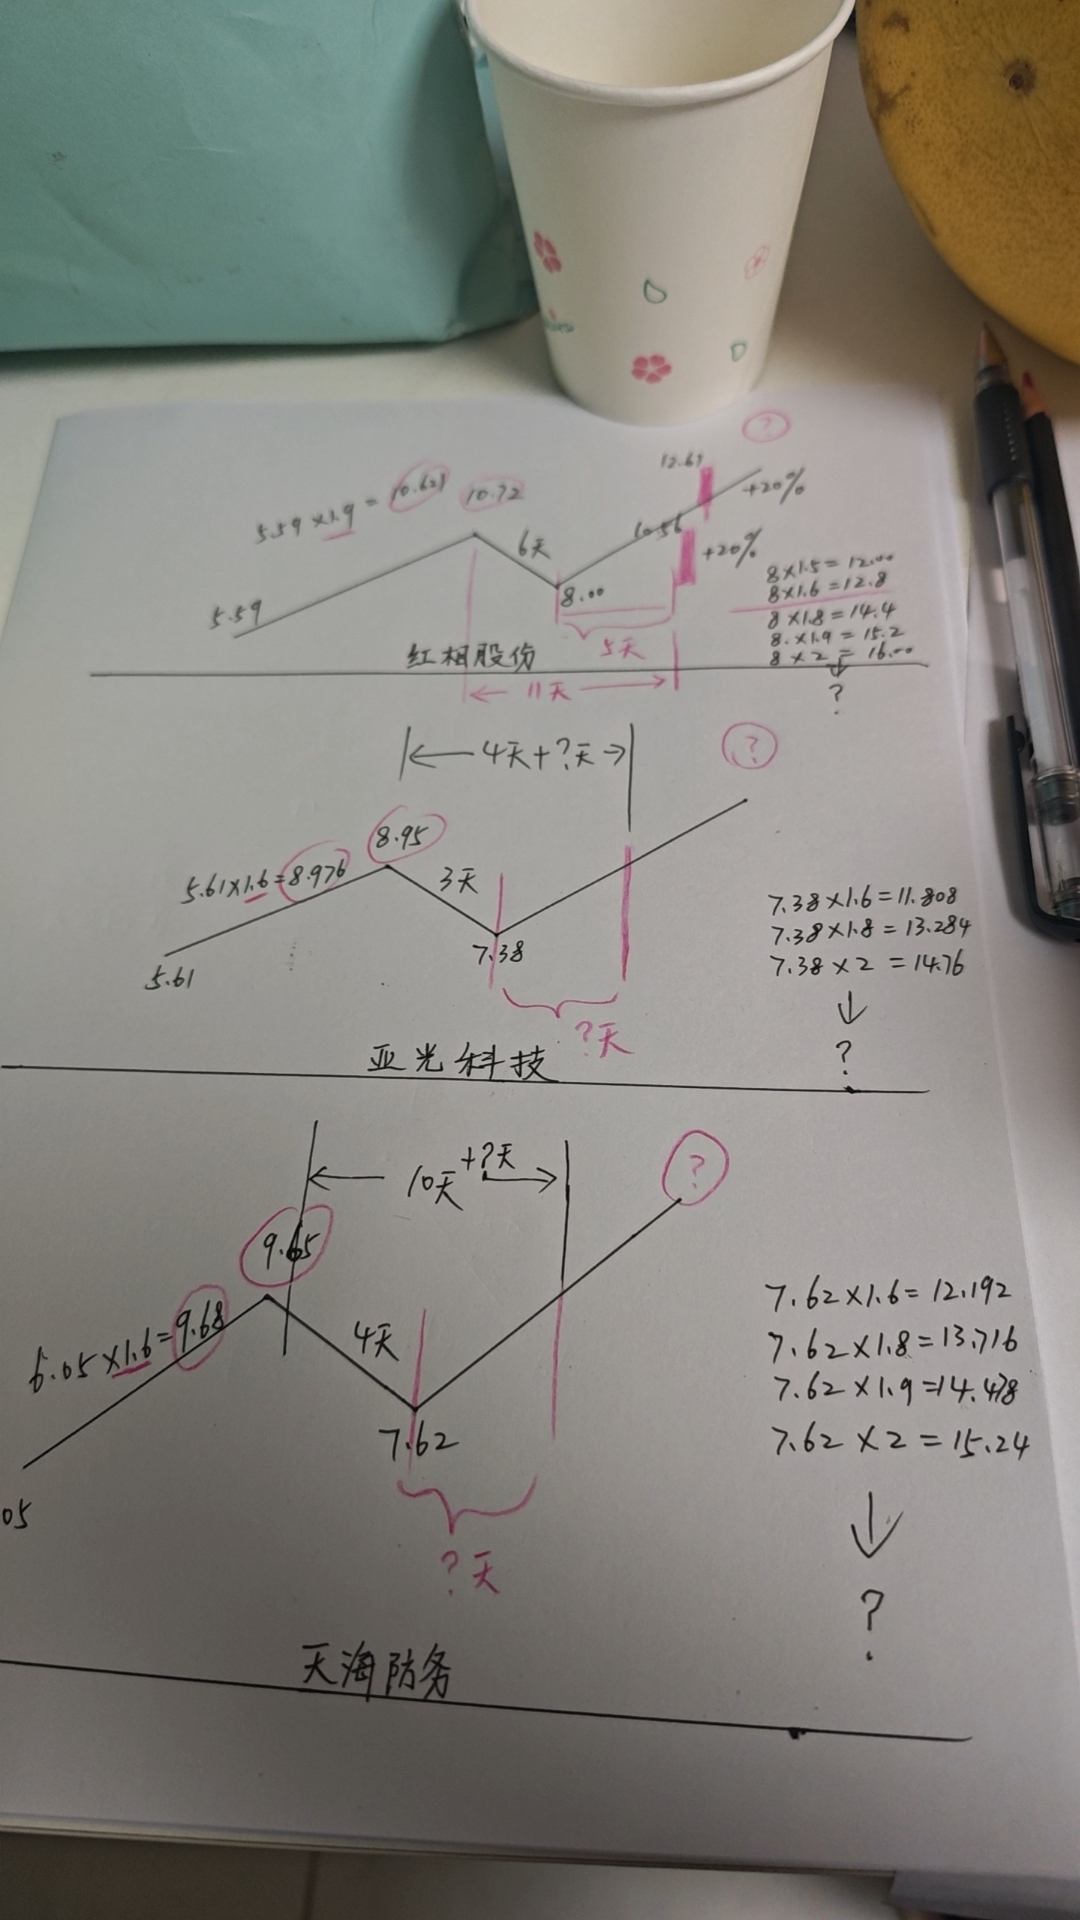 5.59 × 1.9 = 10.621
10.72
12.67
?
+20%
6天
10.56
+20%
5.59
8.00
8×1.5=12.00
8×1.6=12.8
8×1.8=14.4
8.×1.9=15.2
8×2=16.00
?
5天
红相股份
11天
4天+?天
?
8.95
5.61×1.6=8.976
3天
7.38
5.61
7.38×1.6=11.808
7.38×1.8=13.284
7.38×2=14.76
?
?天
亚光科技
10天+?天
?
9.65
6.05×1.6=9.68
4天
7.62
05
7.62×1.6=12.192
7.62×1.8=13.716
7.62×1.9=14.478
7.62×2=15.24
?
?天
天海防务